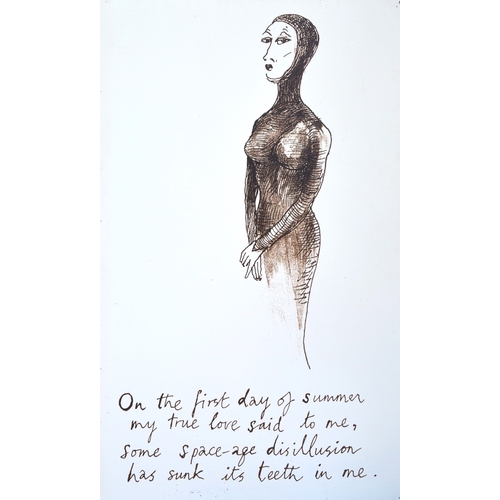 On the first day of summer
my true love said to me,
some space-age disillusion
has sunk its teeth in me.